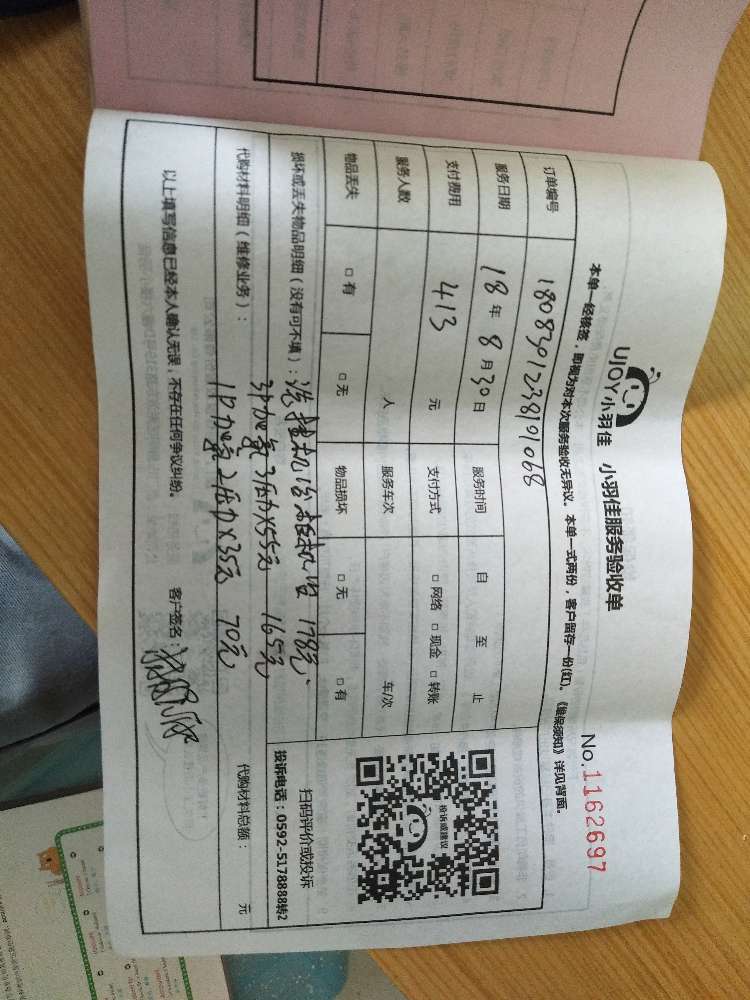 UJOY小羽佳 小羽佳服务验收单
No.1162697
本单一经核签，即视为对本次服务验收无异议。本单一式两份，客户留存一份(红)。《维保须知》详见背面。
订单编号 180830123819068
服务日期 18年 8月30日 服务时间 自 至 止
支付费用 413 元 支付方式 □网络 □现金 □转账
服务人数 人 服务车次 车/次
物品丢失 □有 □无 物品损坏 □无 □有
投诉或建议
扫码评价或投诉
投诉电话：0592-5178888转2
损坏或丢失物品明细（没有可不填）：洗挂机 柜机 178元.
3P加氟3压力×55元 165元
代购材料明细（维修业务）： 1P加氟2压力×35元 70元
代购材料总额： 元
以上填写信息已经本人确认无误，不存在任何争议纠纷。 客户签名：